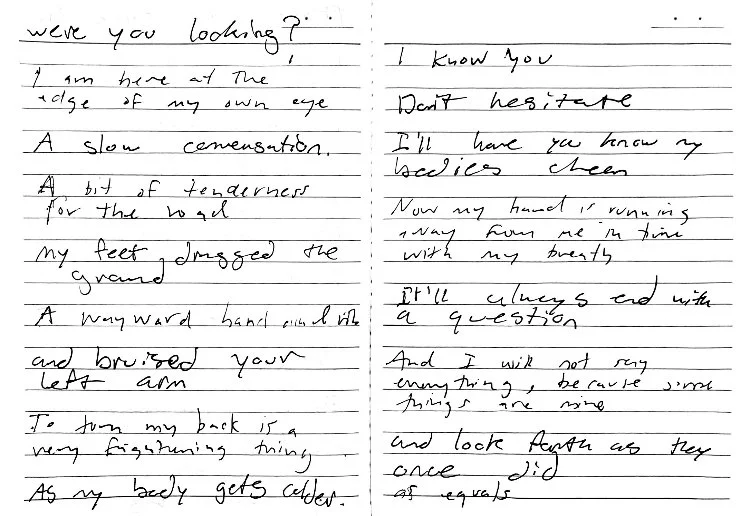 were you looking?
I am here at the
edge of my own eye
A slow conversation.
A bit of tenderness
for the road
my feet, dragged the
ground
A wayward hand
and bruised your
left arm
To turn my back is a
very frightening thing
As my body gets colder.
I know you
Don't hesitate
I'll have you know my
bodies
Now my hand is running
away from me in time
with my breath
It'll always end with
a question
And I will not say
everything, because some
things are mine
and look forth as they
once did
as equals